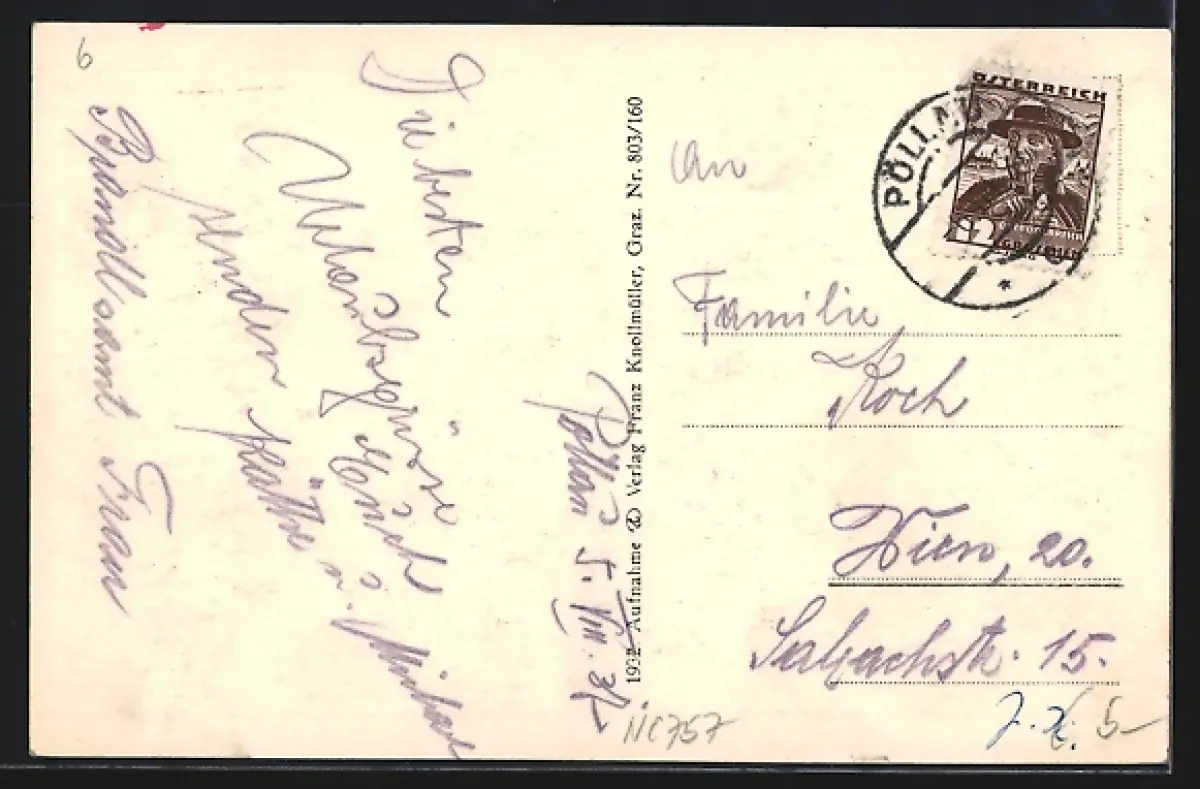 6
Die besten
Urlaubsgrüsse
senden
Käthe u.
samt Frau
Pöllau 5. VIII. 34
1932 Aufnahme Verlag Franz Knollmüller, Graz. Nr. 803/160
NC757
PÖLLAU
ÖSTERREICH
12
GROSCHEN
An
Familie
Koch
Wien, 20.
Salzachstr. 15.
5-